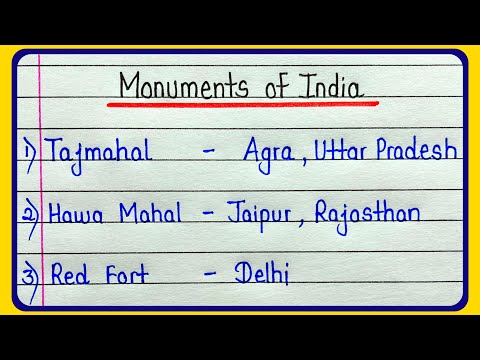 Monuments of India
1) Tajmahal - Agra, Uttar Pradesh
2) Hawa Mahal - Jaipur, Rajasthan
3) Red Fort - Delhi